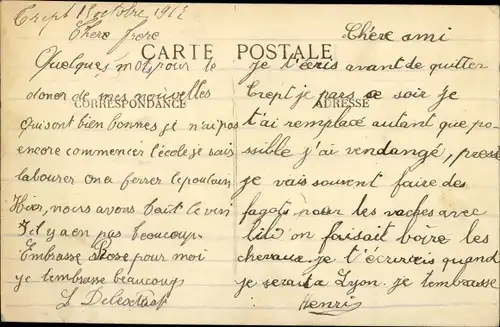 Crept 18 octobre 1912
Chère frere
CARTE POSTALE
CORRESPONDANCE
Quelques mots pour te
doner de mes nouvelles
qui sont bien bonnes je n'ai pas
encore commencer l'école je vais
labourer on a ferrer le poulain
Hier, nous avons fait le vin
il y a en pas beaucoup
Embrasse Rose pour moi
je tembrasse beaucoup
L
ADRESSE
Chère ami
je t'écris avant de quitter
Crept je pars ce soir je
t'ai remplacé autant que po-
ssible j'ai vendangé, pressé
je vais souvent faire des
fagots pour les vaches avec
lili on faisait boire les
chevaux. je t'écrirais quand
je serai a Lyon. je tembrasse
Henri